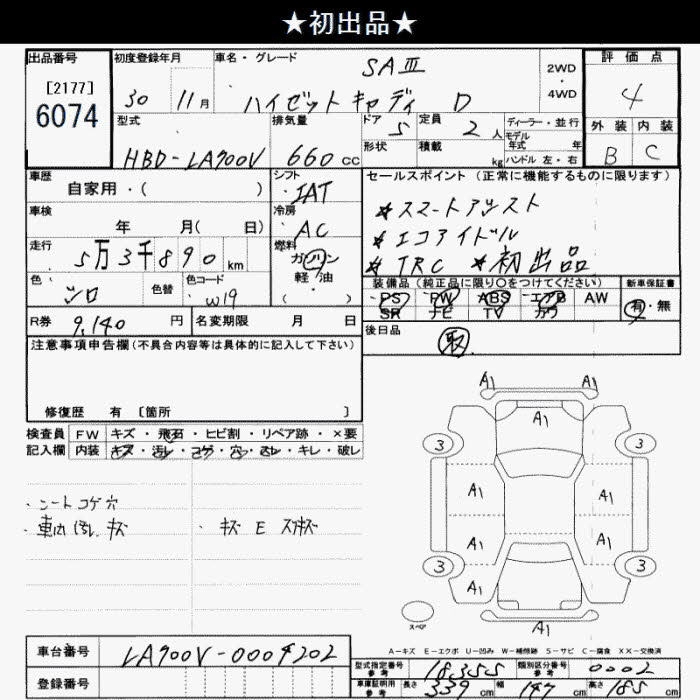 ★初出品★
出品番号
[2177]
6074
初度登録年月
30 11月
車名・グレード
SAⅢ
ハイゼット キャディ D
2WD
・
4WD
評価点
4
外装 内装
B C
型式
HBD-LA700V
排気量
660 cc
ドア 5
形状
定員 2 人
積載 kg
ディーラー・並行
モデル年式 年
ハンドル 左・右
車歴
自家用・( )
シフト
IAT
車検
年 月( 日)
冷房
AC
走行
5万3千890 km
燃料
ガソリン
軽・油
( )
色
シロ
色替
色コード
W19
R券 9,140 円
名変期限 月 日
セールスポイント (正常に機能するものに限ります)
★スマートアシスト
★エコアイドル
★TRC ★初出品
装備品 (純正品に限り○をつけてください)
PS PW ABS エアB AW
SR ナビ TV カワ
新車保証書
有・無
後日品
取
注意事項申告欄(不具合内容等は具体的に記入して下さい)
修復歴 有 [箇所 ]
検査員 FW キズ・飛石・ヒビ割・リペア跡・×要
記入欄 内装 キズ・汚レ・コゲ・穴・スレ・キレ・破レ
・シートコゲ穴
・車内汚レ、キズ
・キズ E スリキズ
A1 A1
A1
3 3
A1 A1
A1 A1
3 3
A1 A1
A1
スペア
A-キズ E-エクボ U-凹み W-補修跡 S-サビ C-腐食 XX-交換済
車台番号 LA700V-0004202
登録番号
型式指定番号 参考 18355
類別区分番号 参考 0002
車庫証明用 参考 長さ 339 cm 幅 147 cm 高さ 185 cm